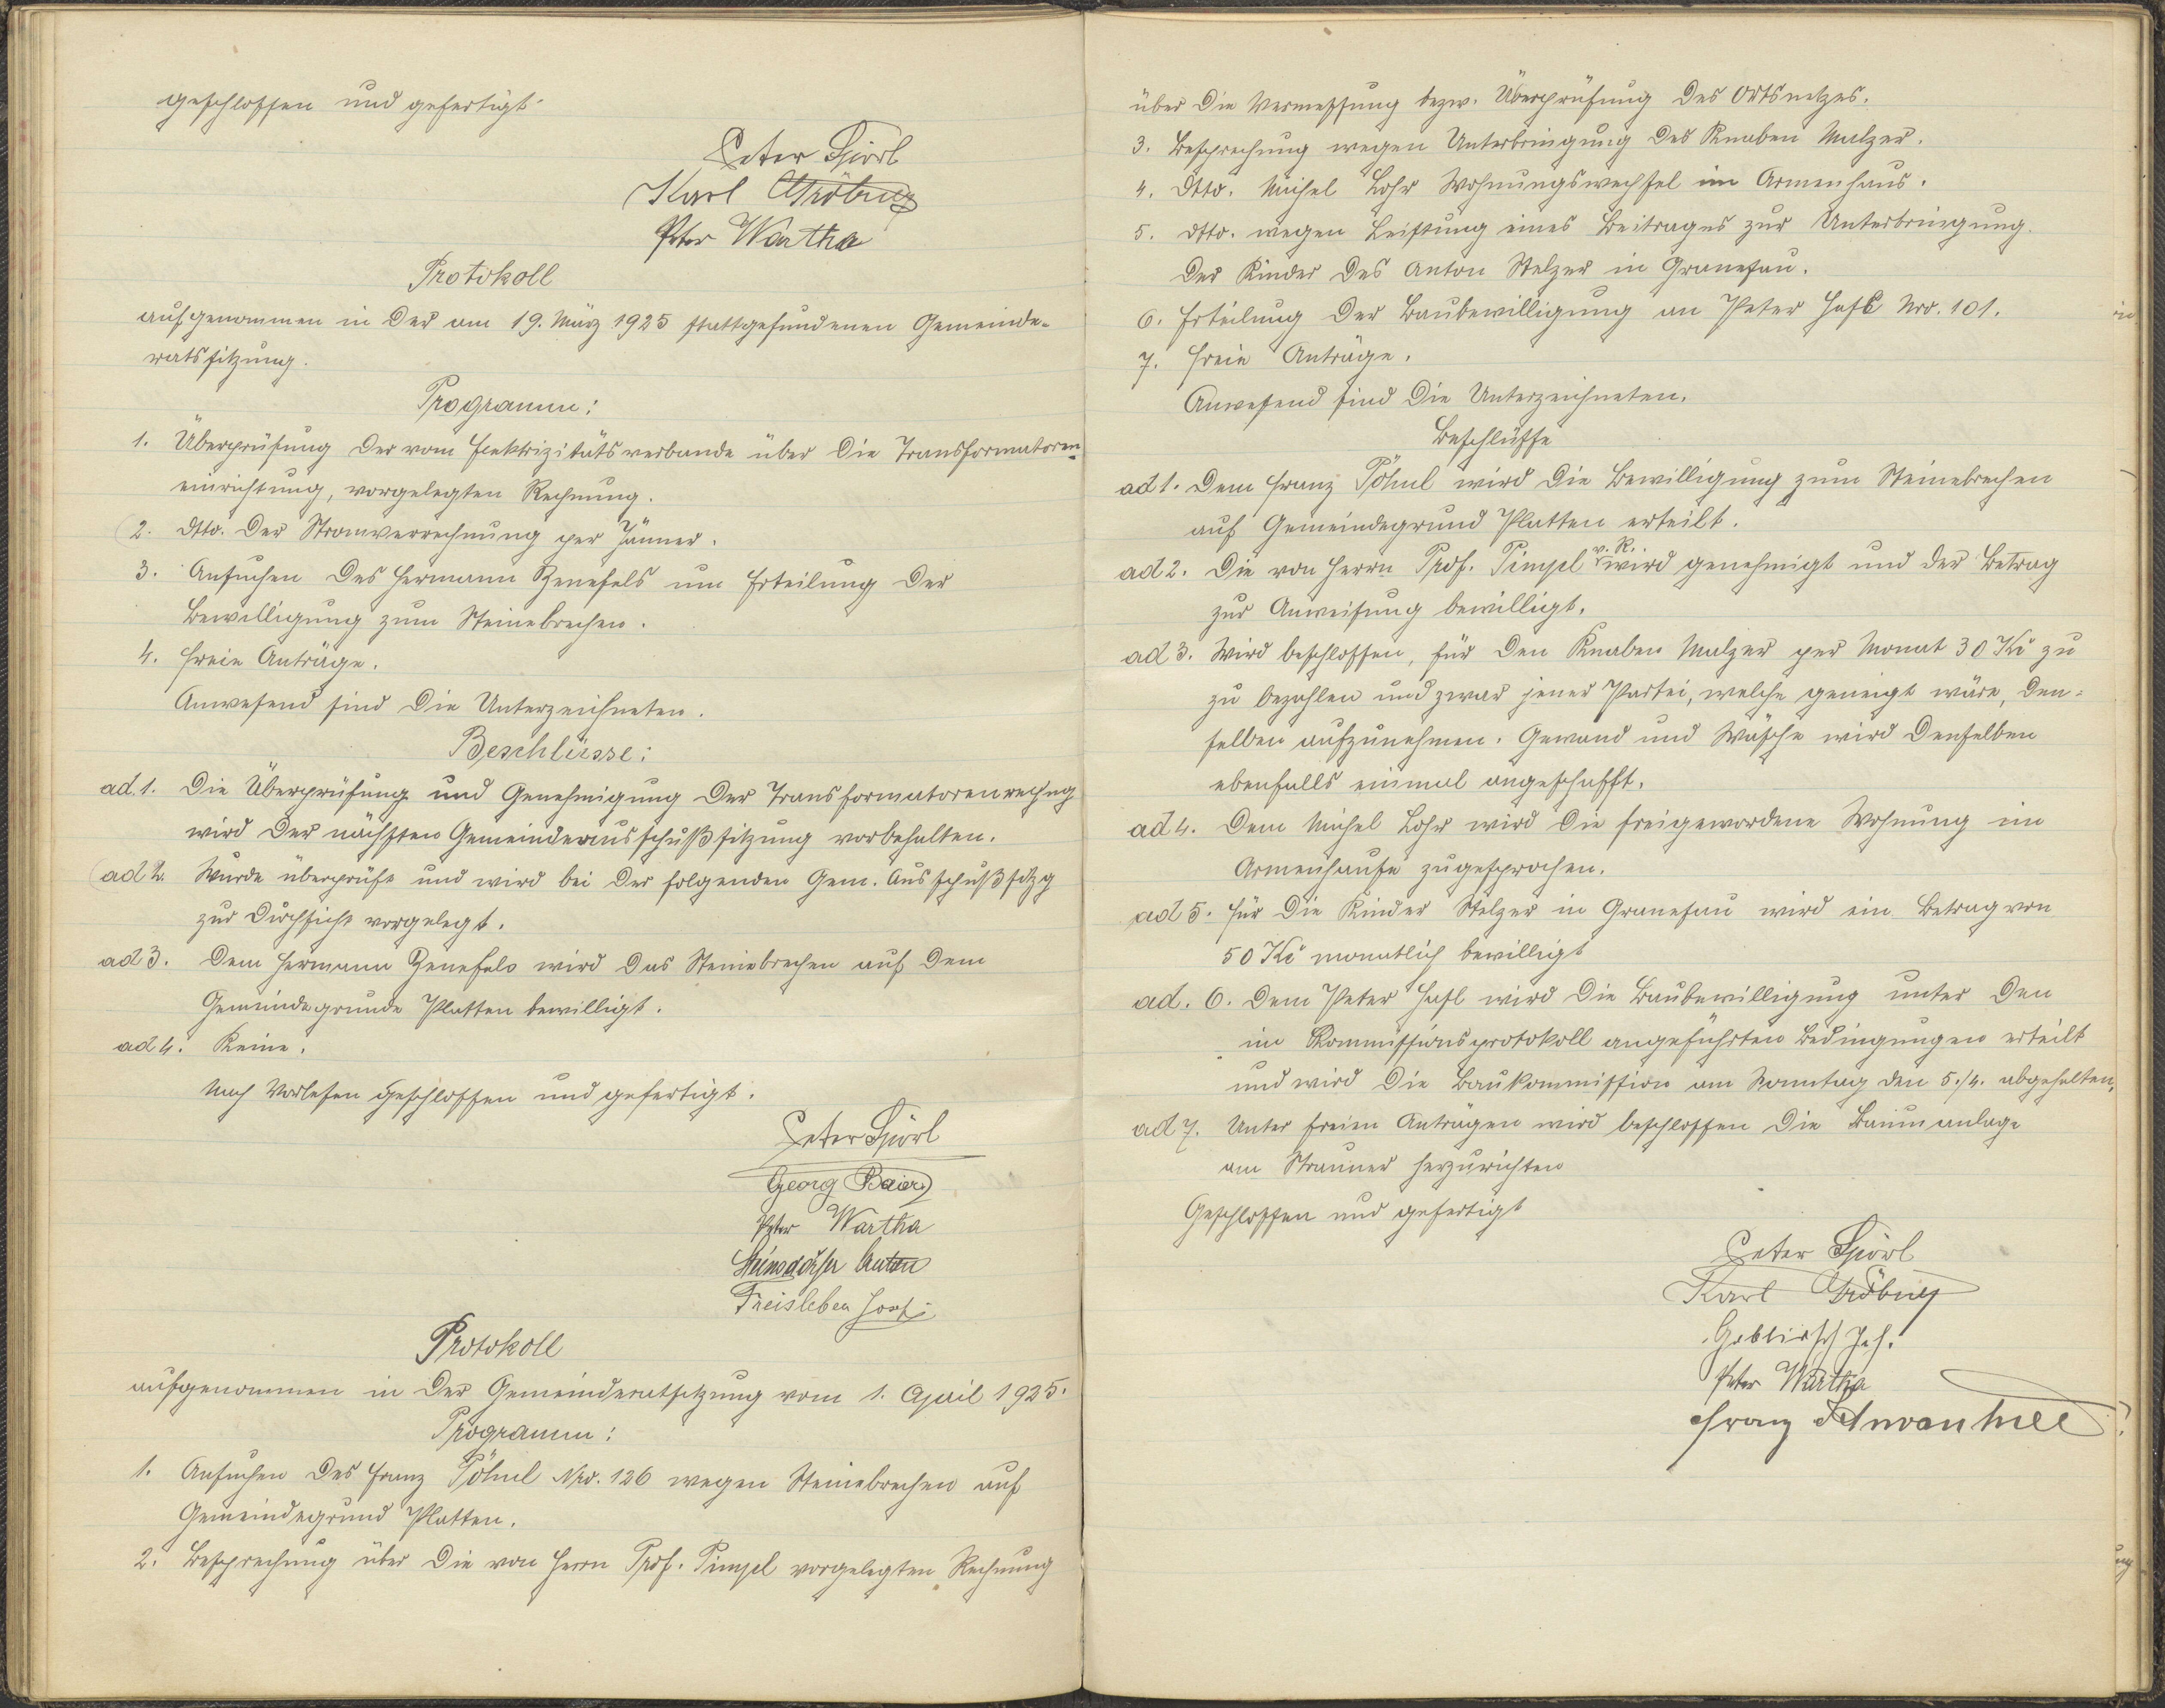 geschlossen und gefertigt.
Peter Spörl
Karl Gröbner
Peter Wartha
Protokoll
aufgenommen in der am 19. März 1925 stattgefundenen Gemeinde-
ratssitzung.
Programm:
1. Überprüfung der vom Elektrizitätsverbande über die Transformatoren-
einrichtung, vorgelegten Rechnung.
2. dtto. der Stromverrechnung per Jänner.
3. Ansuchen des Hermann Zenefels um Erteilung der
Bewilligung zum Steinebrechen.
4. Freie Anträge.
Anwesend sind die Unterzeichneten.
Beschlüsse:
ad 1. Die Überprüfung und Genehmigung der Transformatorenrechng
wird der nächsten Gemeindeausschußsitzung vorbehalten.
ad 2. Wurde überprüft und wird bei der folgenden Gem. Ausschußsitzg
zur Durchsicht vorgelegt.
ad 3. Dem Hermann Zenefels wird das Steinebrechen auf dem
Gemeindegrunde Platten bewilligt.
ad 4. Keine.
Nach Vorlesen geschlossen und gefertigt.
Peter Spörl
Georg Baier
Peter Wartha
Anton
Freisleben Josef
Protokoll
aufgenommen in der Gemeinderatsitzung vom 1. April 1925.
Programm:
1. Ansuchen des Franz Pöhnl Nro. 126 wegen Steinebrechen auf
Gemeindegrund Platten.
2. Besprechung über die von Herrn Prof. Pimpel vorgelegten Rechnung
über die Vermessung bezw. Überprüfung des Ortsnetzes.
3. Besprechung wegen Unterbringung des Knaben Malzer.
4. dtto. Michel Lohr Wohnungswechsel im Armenhaus.
5. dtto. wegen Leistung eines Beitrages zur Unterbringung
der Kinder des Anton Stelzer in Granesau.
6. Erteilung der Baubewilligung an Peter Hasl Nro. 101.
7. Freie Anträge.
Anwesend sind die Unterzeichneten.
Beschlüsse
ad 1. Dem Franz Pöhnl wird die Bewilligung zum Steinebrechen
auf Gemeindegrund Platten erteilt.
ad 2. Die von Herrn Prof. Pimpel v. R. wird genehmigt und der Betrag
zur Anweisung bewilligt.
ad 3. Wird beschlossen, für den Knaben Malzer per Monat 30 Kč zu
zu bezahlen und zwar jener Partei, welche geneigt wäre, den-
selben aufzunehmen. Gewand und Wäsche wird denselben
ebenfalls einmal angeschafft.
ad 4. Dem Michel Lohr wird die freigewordene Wohnung im
Armenhause zugesprochen.
ad 5. Für die Kinder Stelzer in Granesau wird ein Betrag von
50 Kč monatlich bewilligt
ad. 6. Dem Peter Hasl wird die Baubewilligung unter den
im Kommissionsprotokoll angeführten Bedingungen erteilt
und wird die Baukommission am Sonntag den 5./4. abgehalten.
ad 7. Unter freien Anträgen wird beschlossen die Baumanlage
am herzurichten
Geschlossen und gefertigt
Peter Spörl
Karl Gröbner
Joh.
Peter Wartha
Franz